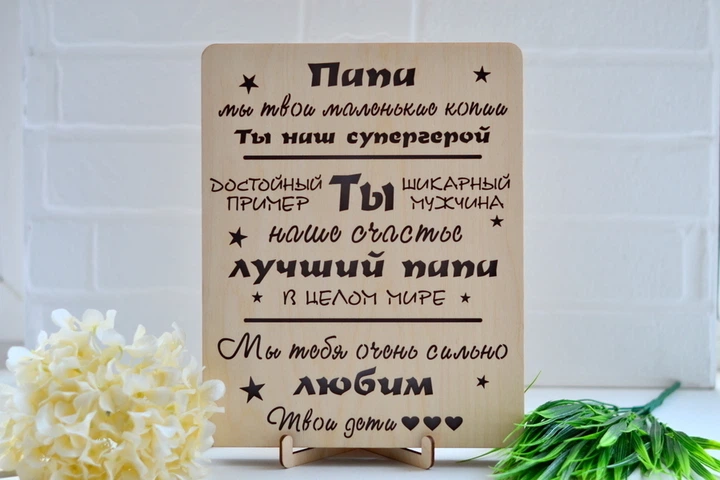 Папа
мы твои маленькие копии
Ты наш супергерой
ДОСТОЙНЫЙ ПРИМЕР
Ты
ШИКАРНЫЙ МУЖЧИНА
наше счастье
лучший папа
В ЦЕЛОМ МИРЕ
Мы тебя очень сильно
любим
Твои дети